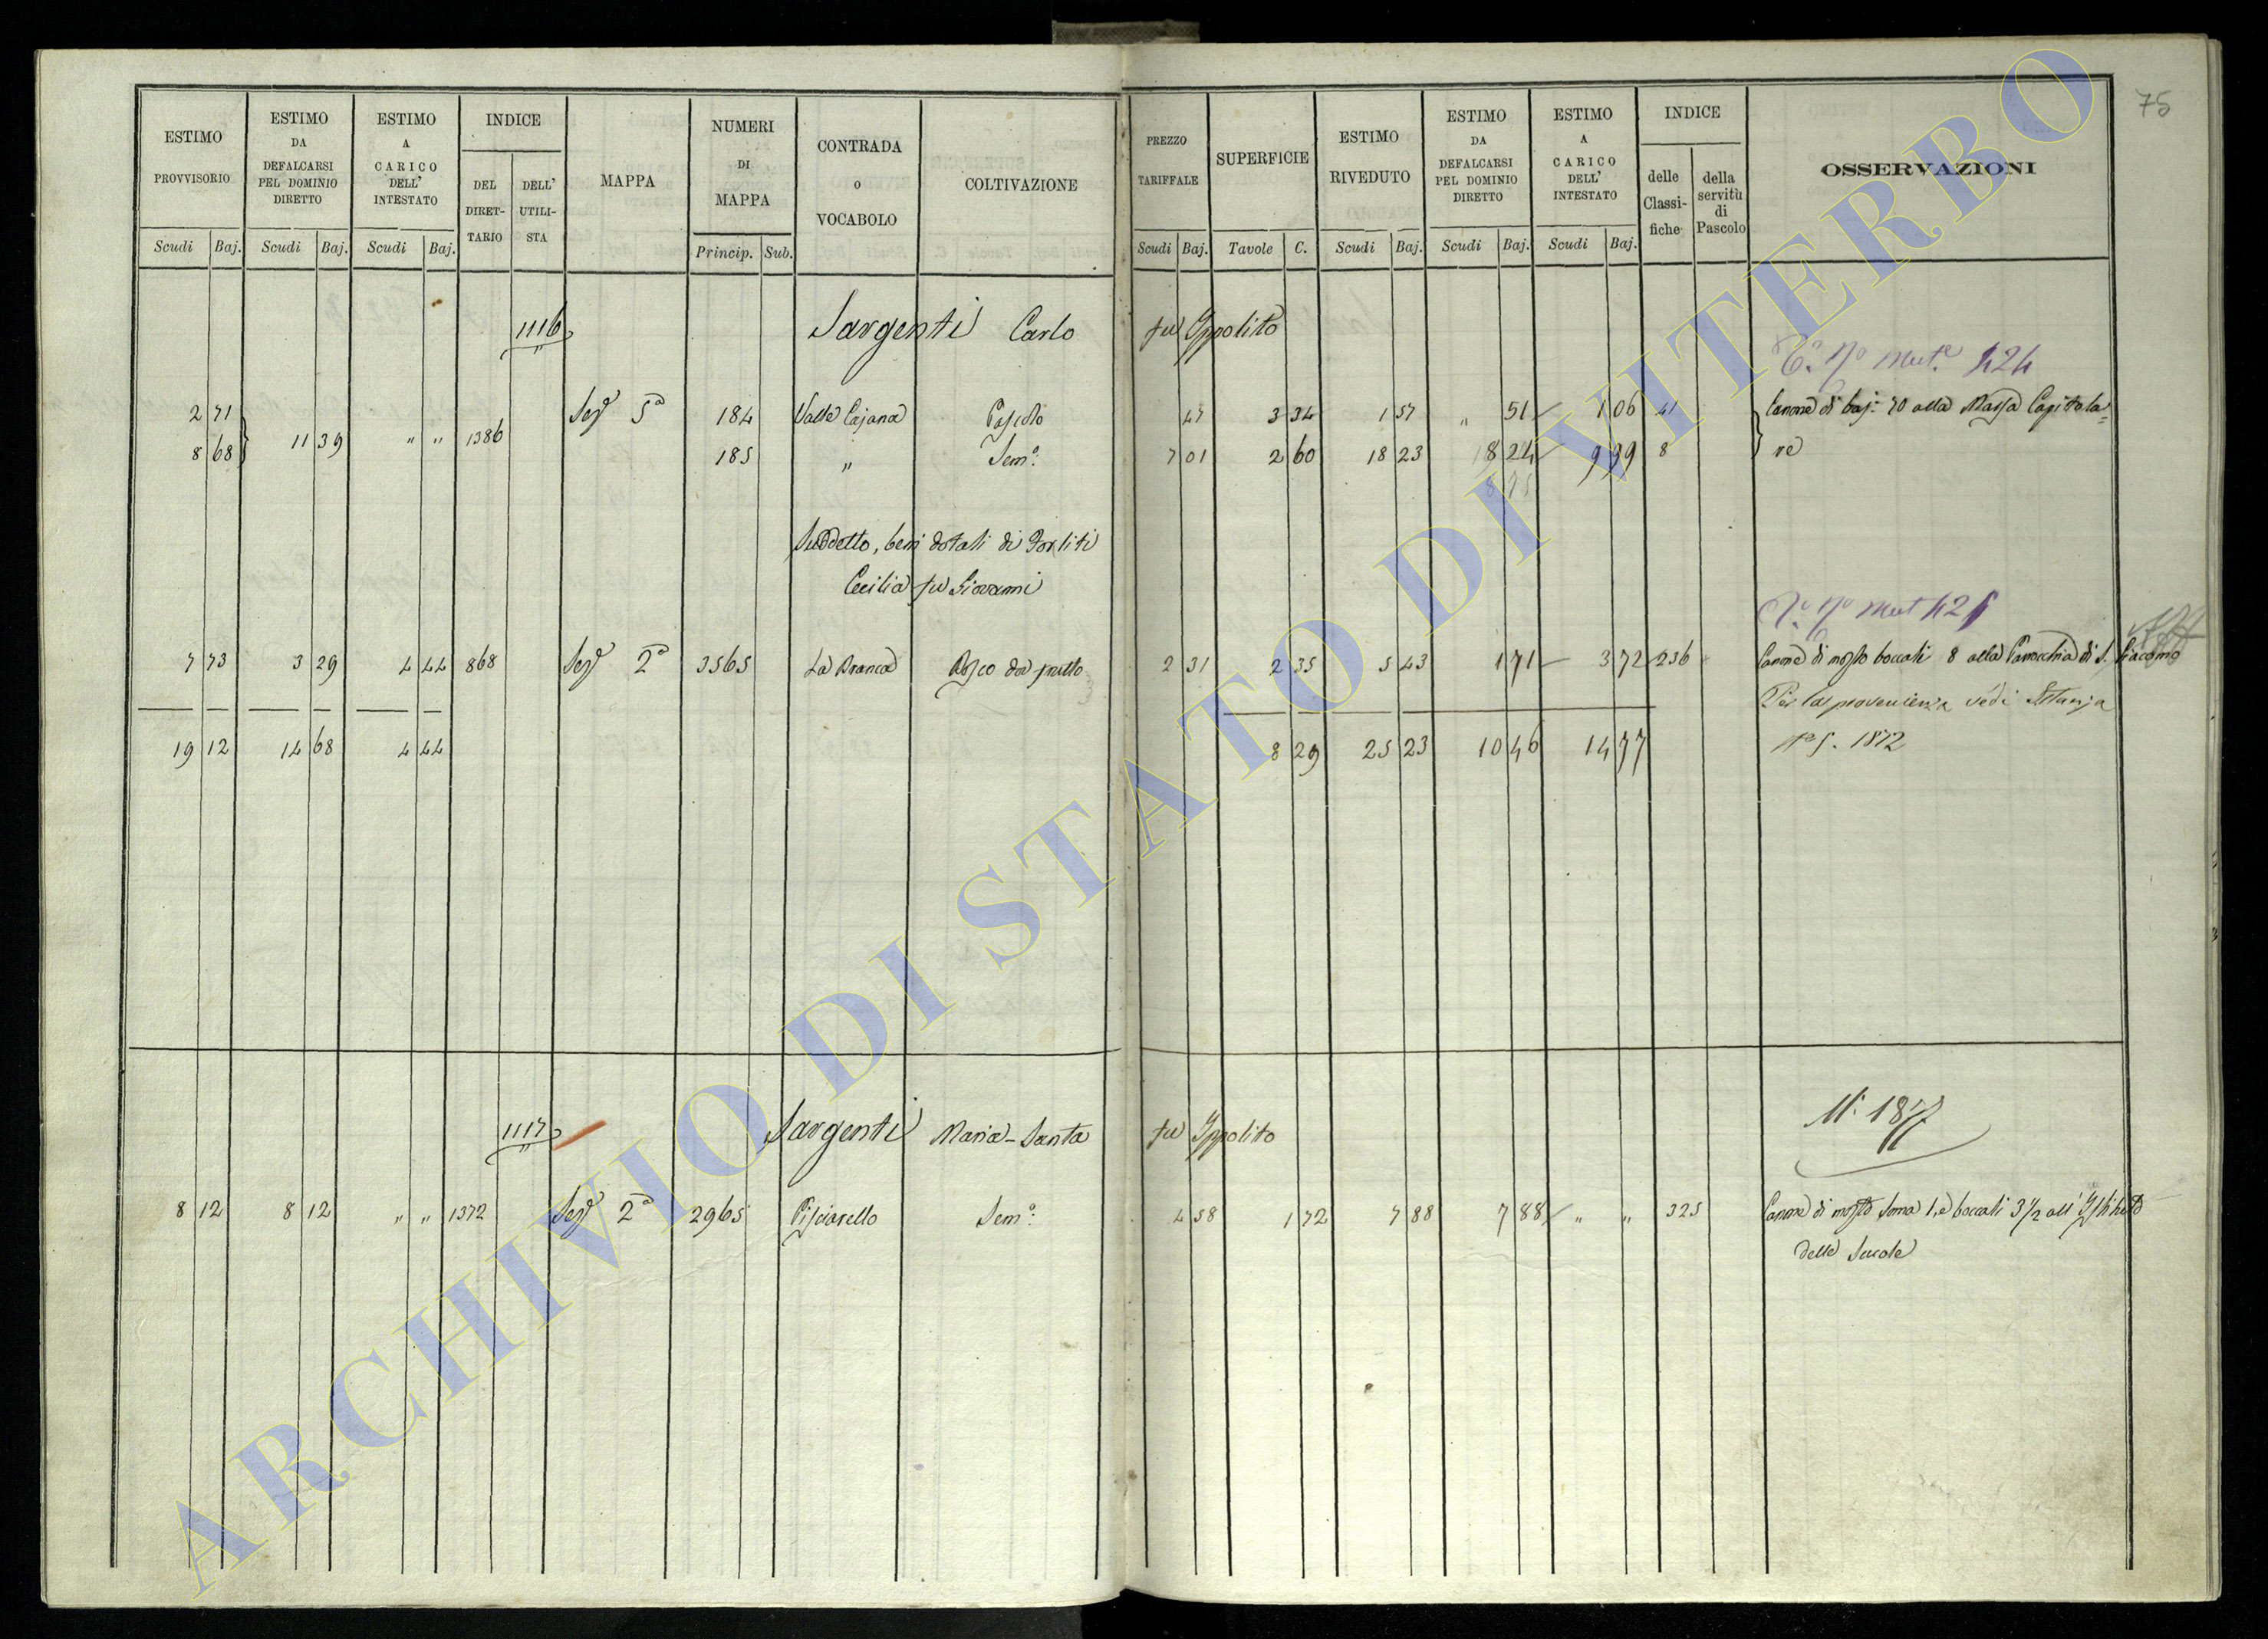 75
ESTIMO PROVVISORIO | ESTIMO DA DEFALCARSI PEL DOMINIO DIRETTO | ESTIMO A CARICO DELL' INTESTATO | INDICE | MAPPA | NUMERI DI MAPPA | CONTRADA O VOCABOLO | COLTIVAZIONE | PREZZO TARIFFALE | SUPERFICIE | ESTIMO RIVEDUTO | ESTIMO DA DEFALCARSI PEL DOMINIO DIRETTO | ESTIMO A CARICO DELL' INTESTATO | INDICE | OSSERVAZIONI
DEL DIRETTARIO | DELL' UTILISTA | delle Classifiche | della servitù di Pascolo
Scudi | Baj. | Scudi | Baj. | Scudi | Baj. | Princip. | Sub. | Scudi | Baj. | Tavole | C. | Scudi | Baj. | Scudi | Baj. | Scudi | Baj.
1116 Sargenti Carlo fu Ippolito
Mut. 424
2 71 | Sez. 5a | 184 | Valle Cajana | Pascolo | 47 | 3 34 | 1 57 | " 51 | 1 06 | 41 | Canone di baj. 70 alla Massa Capitola=
8 68 | 11 39 | " " | 1386 | 185 | " | Sem.o | 7 01 | 2 60 | 18 23 | 8 24 | 9 99 | 8 | re
8 75
Suddetto, beni dotali di
Cecilia fu Giovanni
Mut 425
7 73 | 3 29 | 4 44 | 868 | Sez. 2a | 3565 | La Branca | Bosco da frutto | 2 31 | 2 35 | 5 43 | 1 71 | 3 72 | 236 | Canone di mosto boccali 8 alla Parocchia di S. Giacomo
Per la provenienza vedi Istanza
1872
19 12 | 14 68 | 4 44 | 8 29 | 25 23 | 10 46 | 14 77
1117 Sargenti Maria-Santa fu Ippolito
8 12 | 8 12 | " " | 1372 | Sez. 2a | 2965 | Pisciarello | Sem.o | 4 58 | 1 72 | 7 88 | 7 88 | " " | 325 | Canone di mosto soma 1, e boccali 3 1/2 all' Istituto
delle Scuole
ARCHIVIO DI STATO DI VITERBO